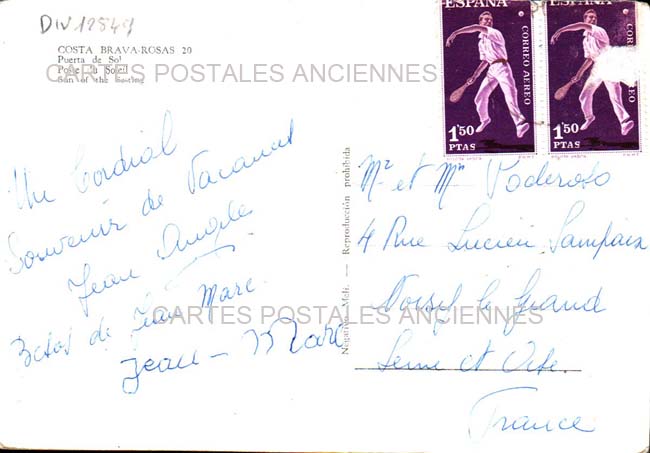 DIV 12849
COSTA BRAVA-ROSAS 20
Puerta de Sol
Poste du Soleil
Sun of the Setting
CARTES POSTALES ANCIENNES
Un Cordial
Souvenir de Vacances
Jean Angele
Besos de Jean Marc
Jean-Marc
CARTES POSTALES ANCIENNES
Negativo Meli. — Reproducción prohibida
ESPAÑA
CORREO AEREO
1'50
PTAS
ESPAÑA
CORREO AEREO
1'50
PTAS
Mr et Mm Poderoso
4 Rue Lucien Sampaix
Noisy le Grand
Seine et Oise
France